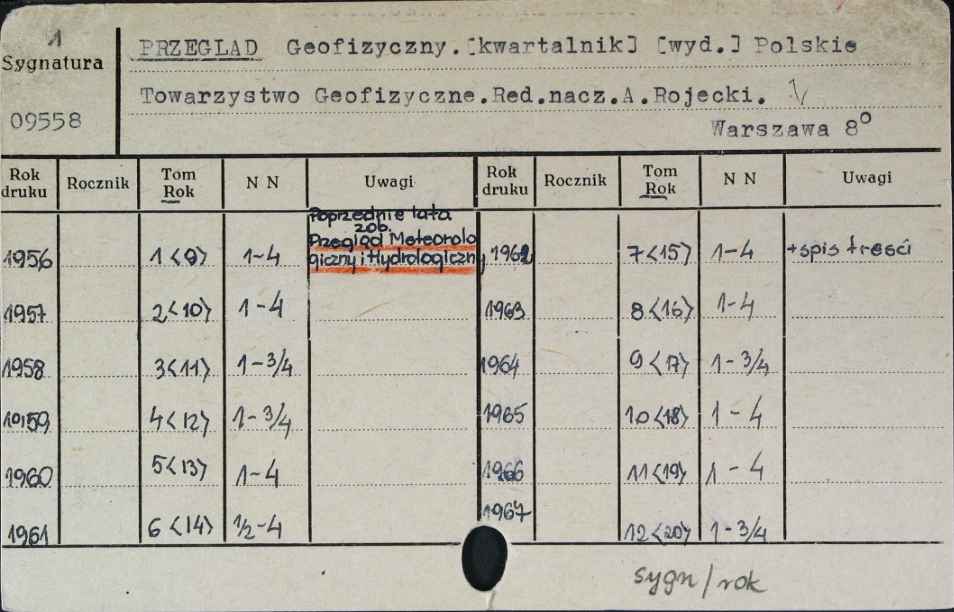 1
Sygnatura
09558
PRZEGLĄD Geofizyczny.[kwartalnik] [wyd.] Polskie
Towarzystwo Geofizyczne.Red.nacz.A.Rojecki. 1/
Warszawa 8°
Rok druku Rocznik Tom Rok N N Uwagi Rok druku Rocznik Tom Rok N N Uwagi
Poprzednie lata
zob.
Przegląd Meteorolo
giczny i Hydrologiczny
1956 1<9> 1-4 1962 7<15> 1-4 +spis treści
1957 2<10> 1-4 1963 8<16> 1-4
1958 3<11> 1-3/4 1964 9<17> 1-3/4
1959 4<12> 1-3/4 1965 10<18> 1-4
1960 5<13> 1-4 1966 11<19> 1-4
1961 6<14> 1/2-4 1967 12<20> 1-3/4
sygn/rok